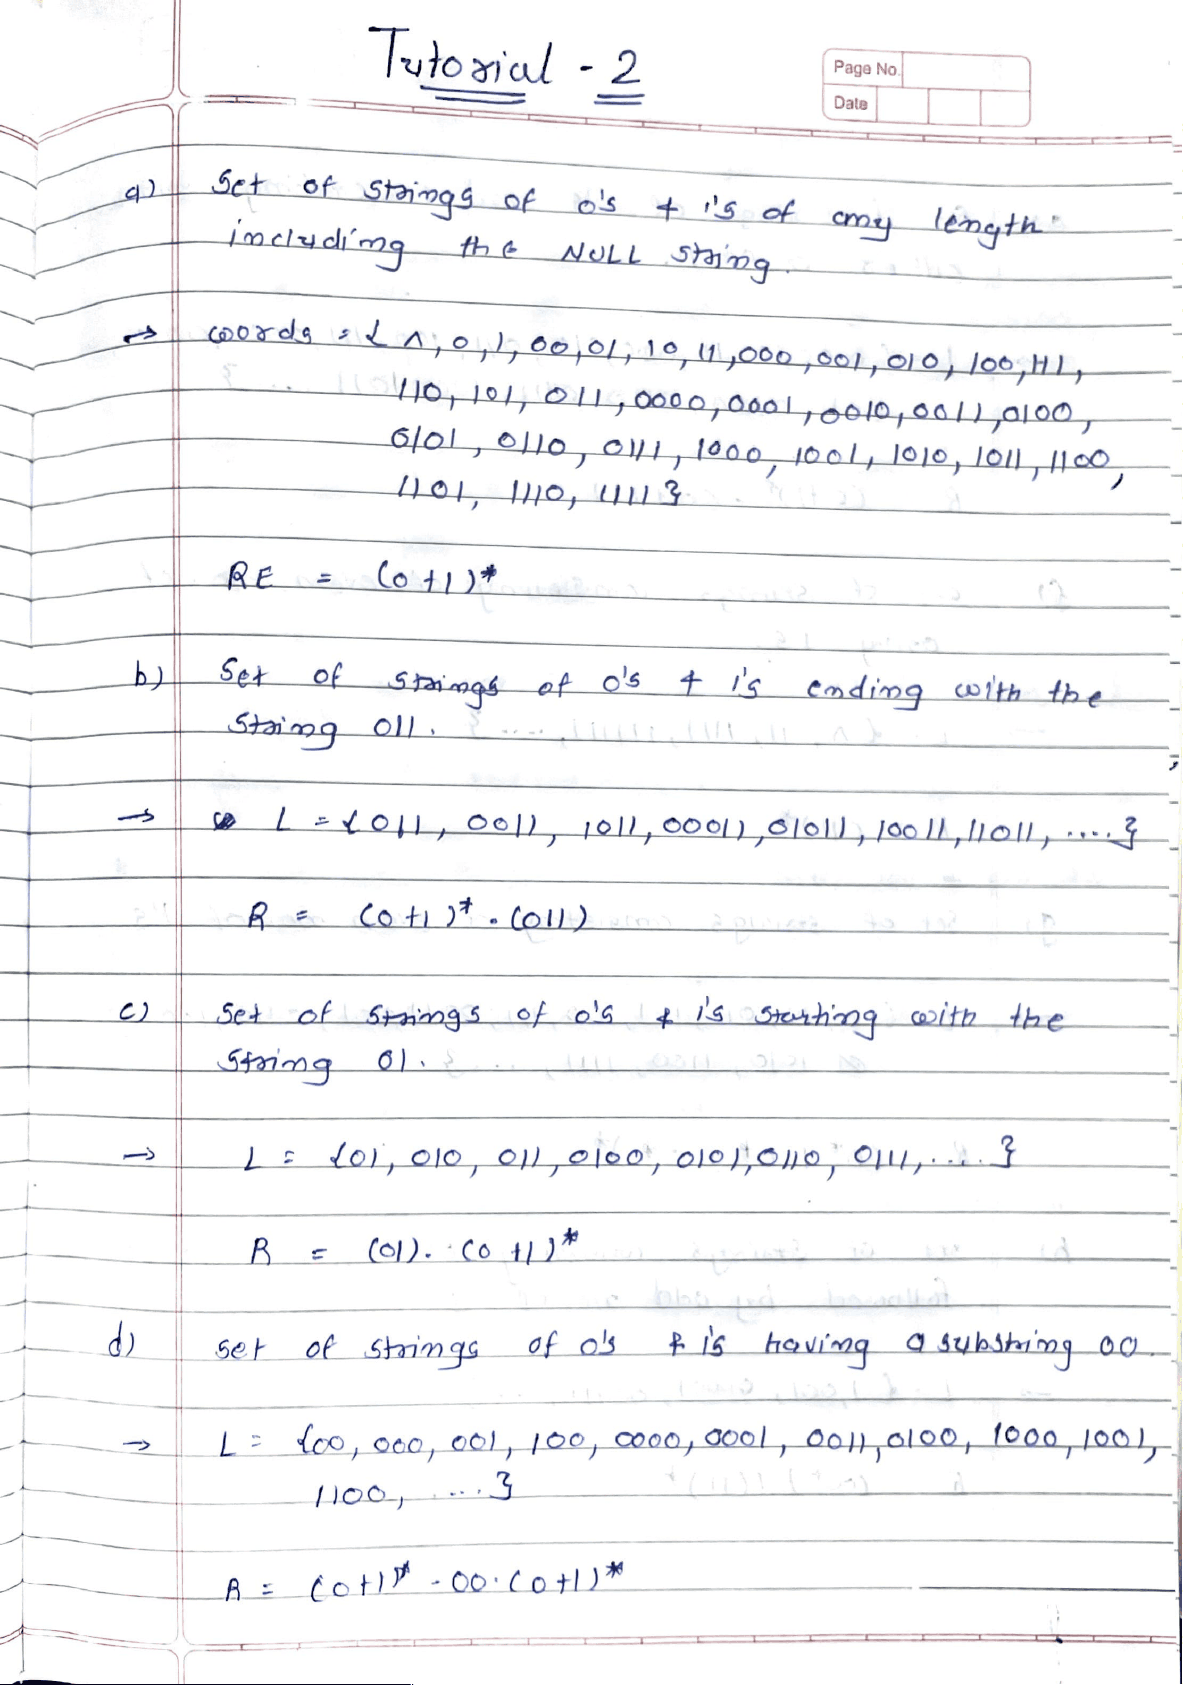 Tutorial - 2
Page No.
Date
a) Set of strings of 0's & 1's of any length
including the NULL string.
→ words = { ^, 0, 1, 00, 01, 10, 11, 000, 001, 010, 100, 111,
110, 101, 011, 0000, 0001, 0010, 0011, 0100,
0101, 0110, 0111, 1000, 1001, 1010, 1011, 1100,
1101, 1110, 1111 }
RE = (0+1)*
b) Set of strings of 0's & 1's ending with the
string 011.
→ L = { 011, 0011, 1011, 00011, 01011, 10011, 11011, .... }
R = (0+1)* . (011)
c) Set of strings of 0's & 1's starting with the
string 01.
→ L = {01, 010, 011, 0100, 0101, 0110, 0111, .... }
R = (01). (0+1)*
d) set of strings of 0's & 1's having a substring 00.
→ L = {00, 000, 001, 100, 0000, 0001, 0011, 0100, 1000, 1001,
1100, .... }
R = (0+1)* . 00 . (0+1)*